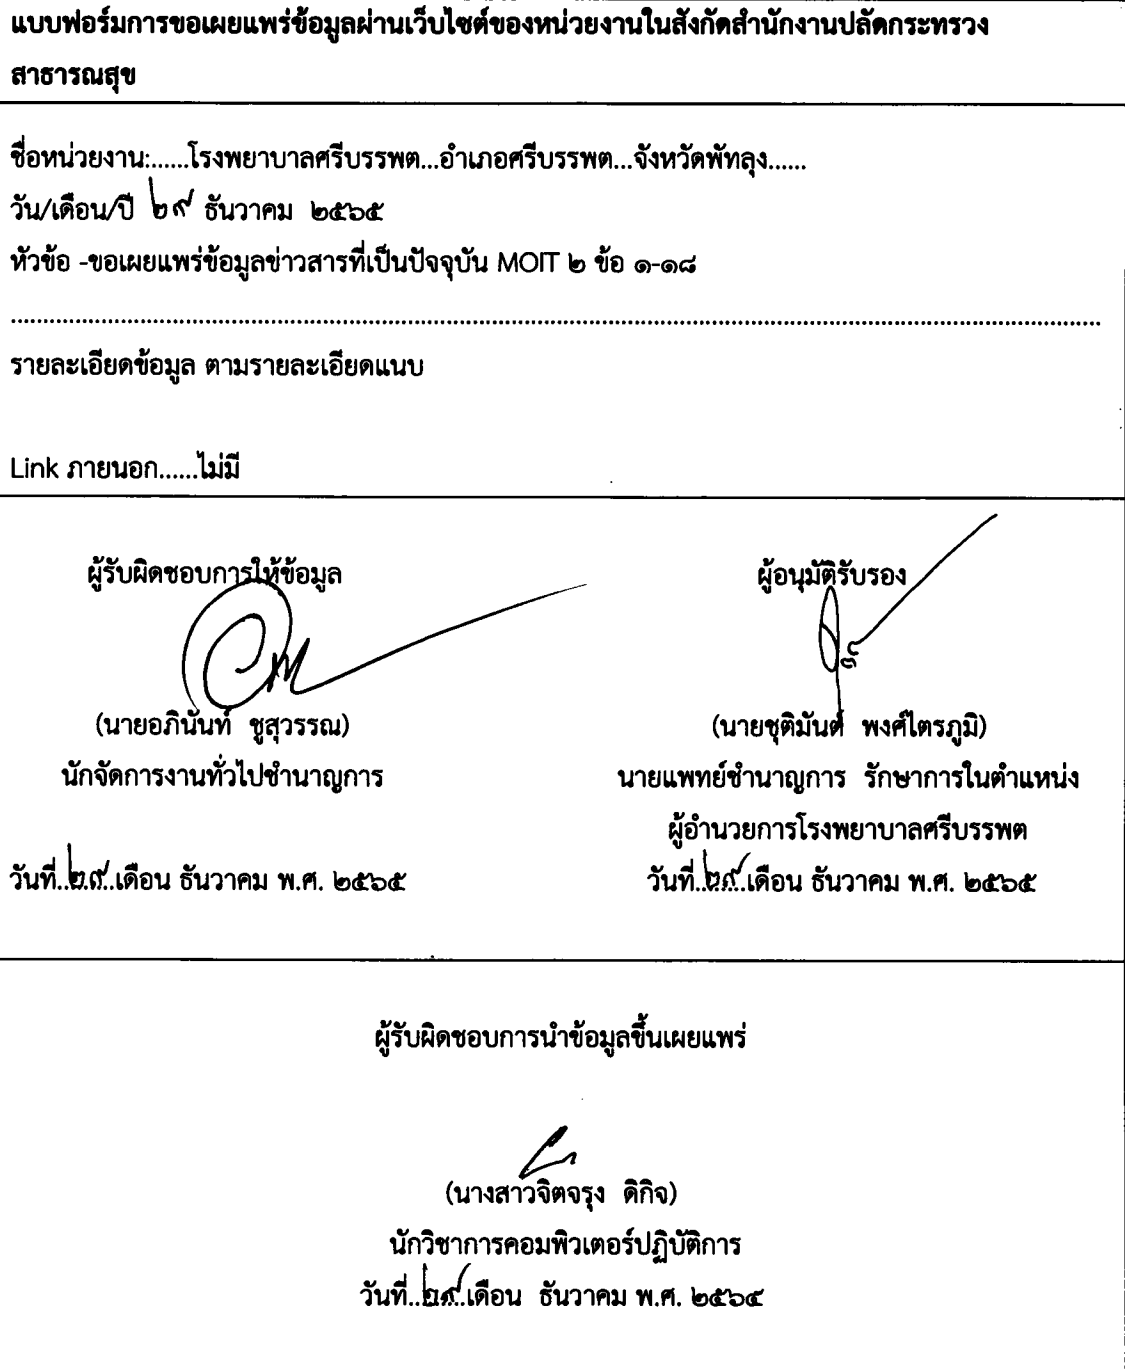 แบบฟอร์มการขอเผยแพร่ข้อมูลผ่านเว็บไซต์ของหน่วยงานในสังกัดสำนักงานปลัดกระทรวง
สาธารณสุข
ชื่อหน่วยงาน:......โรงพยาบาลศรีบรรพต...อำเภอศรีบรรพต...จังหวัดพัทลุง......
วัน/เดือน/ปี ๒๙ ธันวาคม ๒๕๖๕
หัวข้อ -ขอเผยแพร่ข้อมูลข่าวสารที่เป็นปัจจุบัน MOIT ๒ ข้อ ๑-๑๘
รายละเอียดข้อมูล ตามรายละเอียดแนบ
Link ภายนอก......ไม่มี
ผู้รับผิดชอบการให้ข้อมูล
(นายอภินันท์ ชูสุวรรณ)
นักจัดการงานทั่วไปชำนาญการ
วันที่..๒๙..เดือน ธันวาคม พ.ศ. ๒๕๖๕
ผู้อนุมัติรับรอง
(นายชุติมันต์ พงศ์ไตรภูมิ)
นายแพทย์ชำนาญการ รักษาการในตำแหน่ง
ผู้อำนวยการโรงพยาบาลศรีบรรพต
วันที่..๒๙..เดือน ธันวาคม พ.ศ. ๒๕๖๕
ผู้รับผิดชอบการนำข้อมูลขึ้นเผยแพร่
(นางสาวจิตจรุง ดิกิจ)
นักวิชาการคอมพิวเตอร์ปฏิบัติการ
วันที่..๒๙..เดือน ธันวาคม พ.ศ. ๒๕๖๕